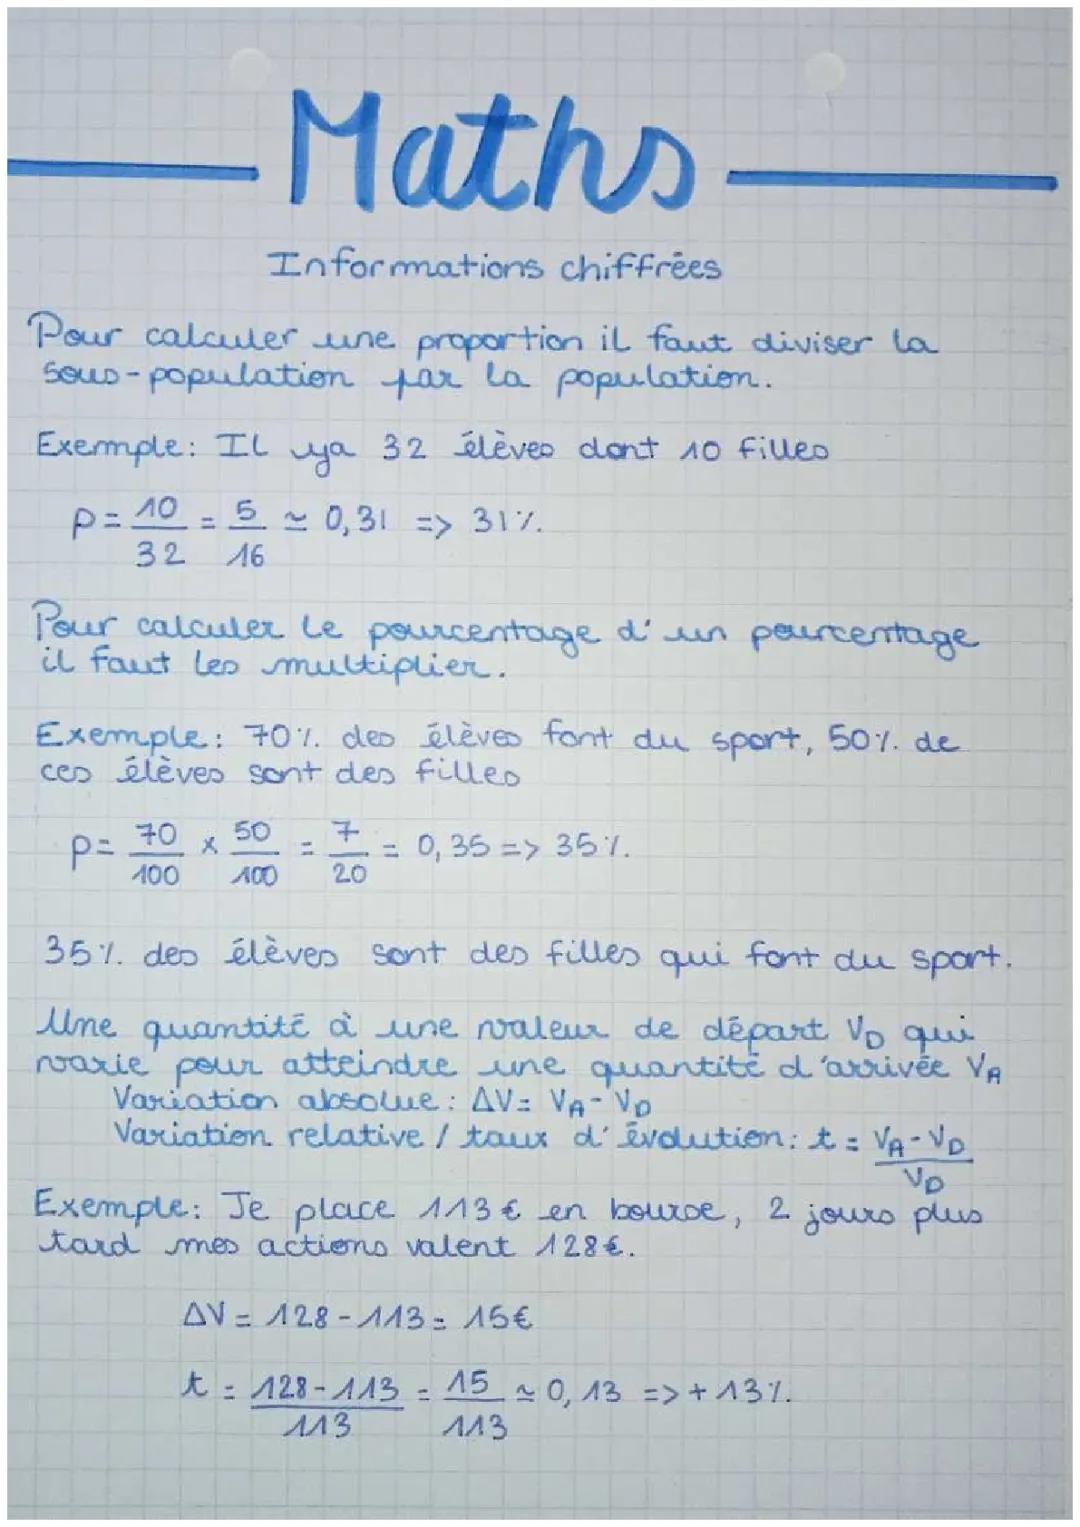 Maths
Informations chiffrées
Pour calculer une proportion il faut diviser la
sous-population par la population.
Exemple: Il ya 32 élèves dont 10 filles
p = 10/32 = 5/16 ≃ 0,31 => 31%.
Pour calculer le pourcentage d'un pourcentage
il faut les multiplier.
Exemple: 70% des élèves font du sport, 50% de
ces élèves sont des filles
p = 70/100 × 50/100 = 7/20 = 0,35 => 35%.
35% des élèves sont des filles qui font du sport.
Une quantité à une valeur de départ VD qui
varie pour atteindre une quantité d'arrivée VA
Variation absolue: ΔV = VA - VD
Variation relative / taux d'évolution: t = VA - VD / VD
Exemple: Je place 113€ en bourse, 2 jours plus
tard mes actions valent 128€.
ΔV = 128 - 113 = 15€
t = 128 - 113 / 113 = 15/113 ≃ 0,13 => +13%.